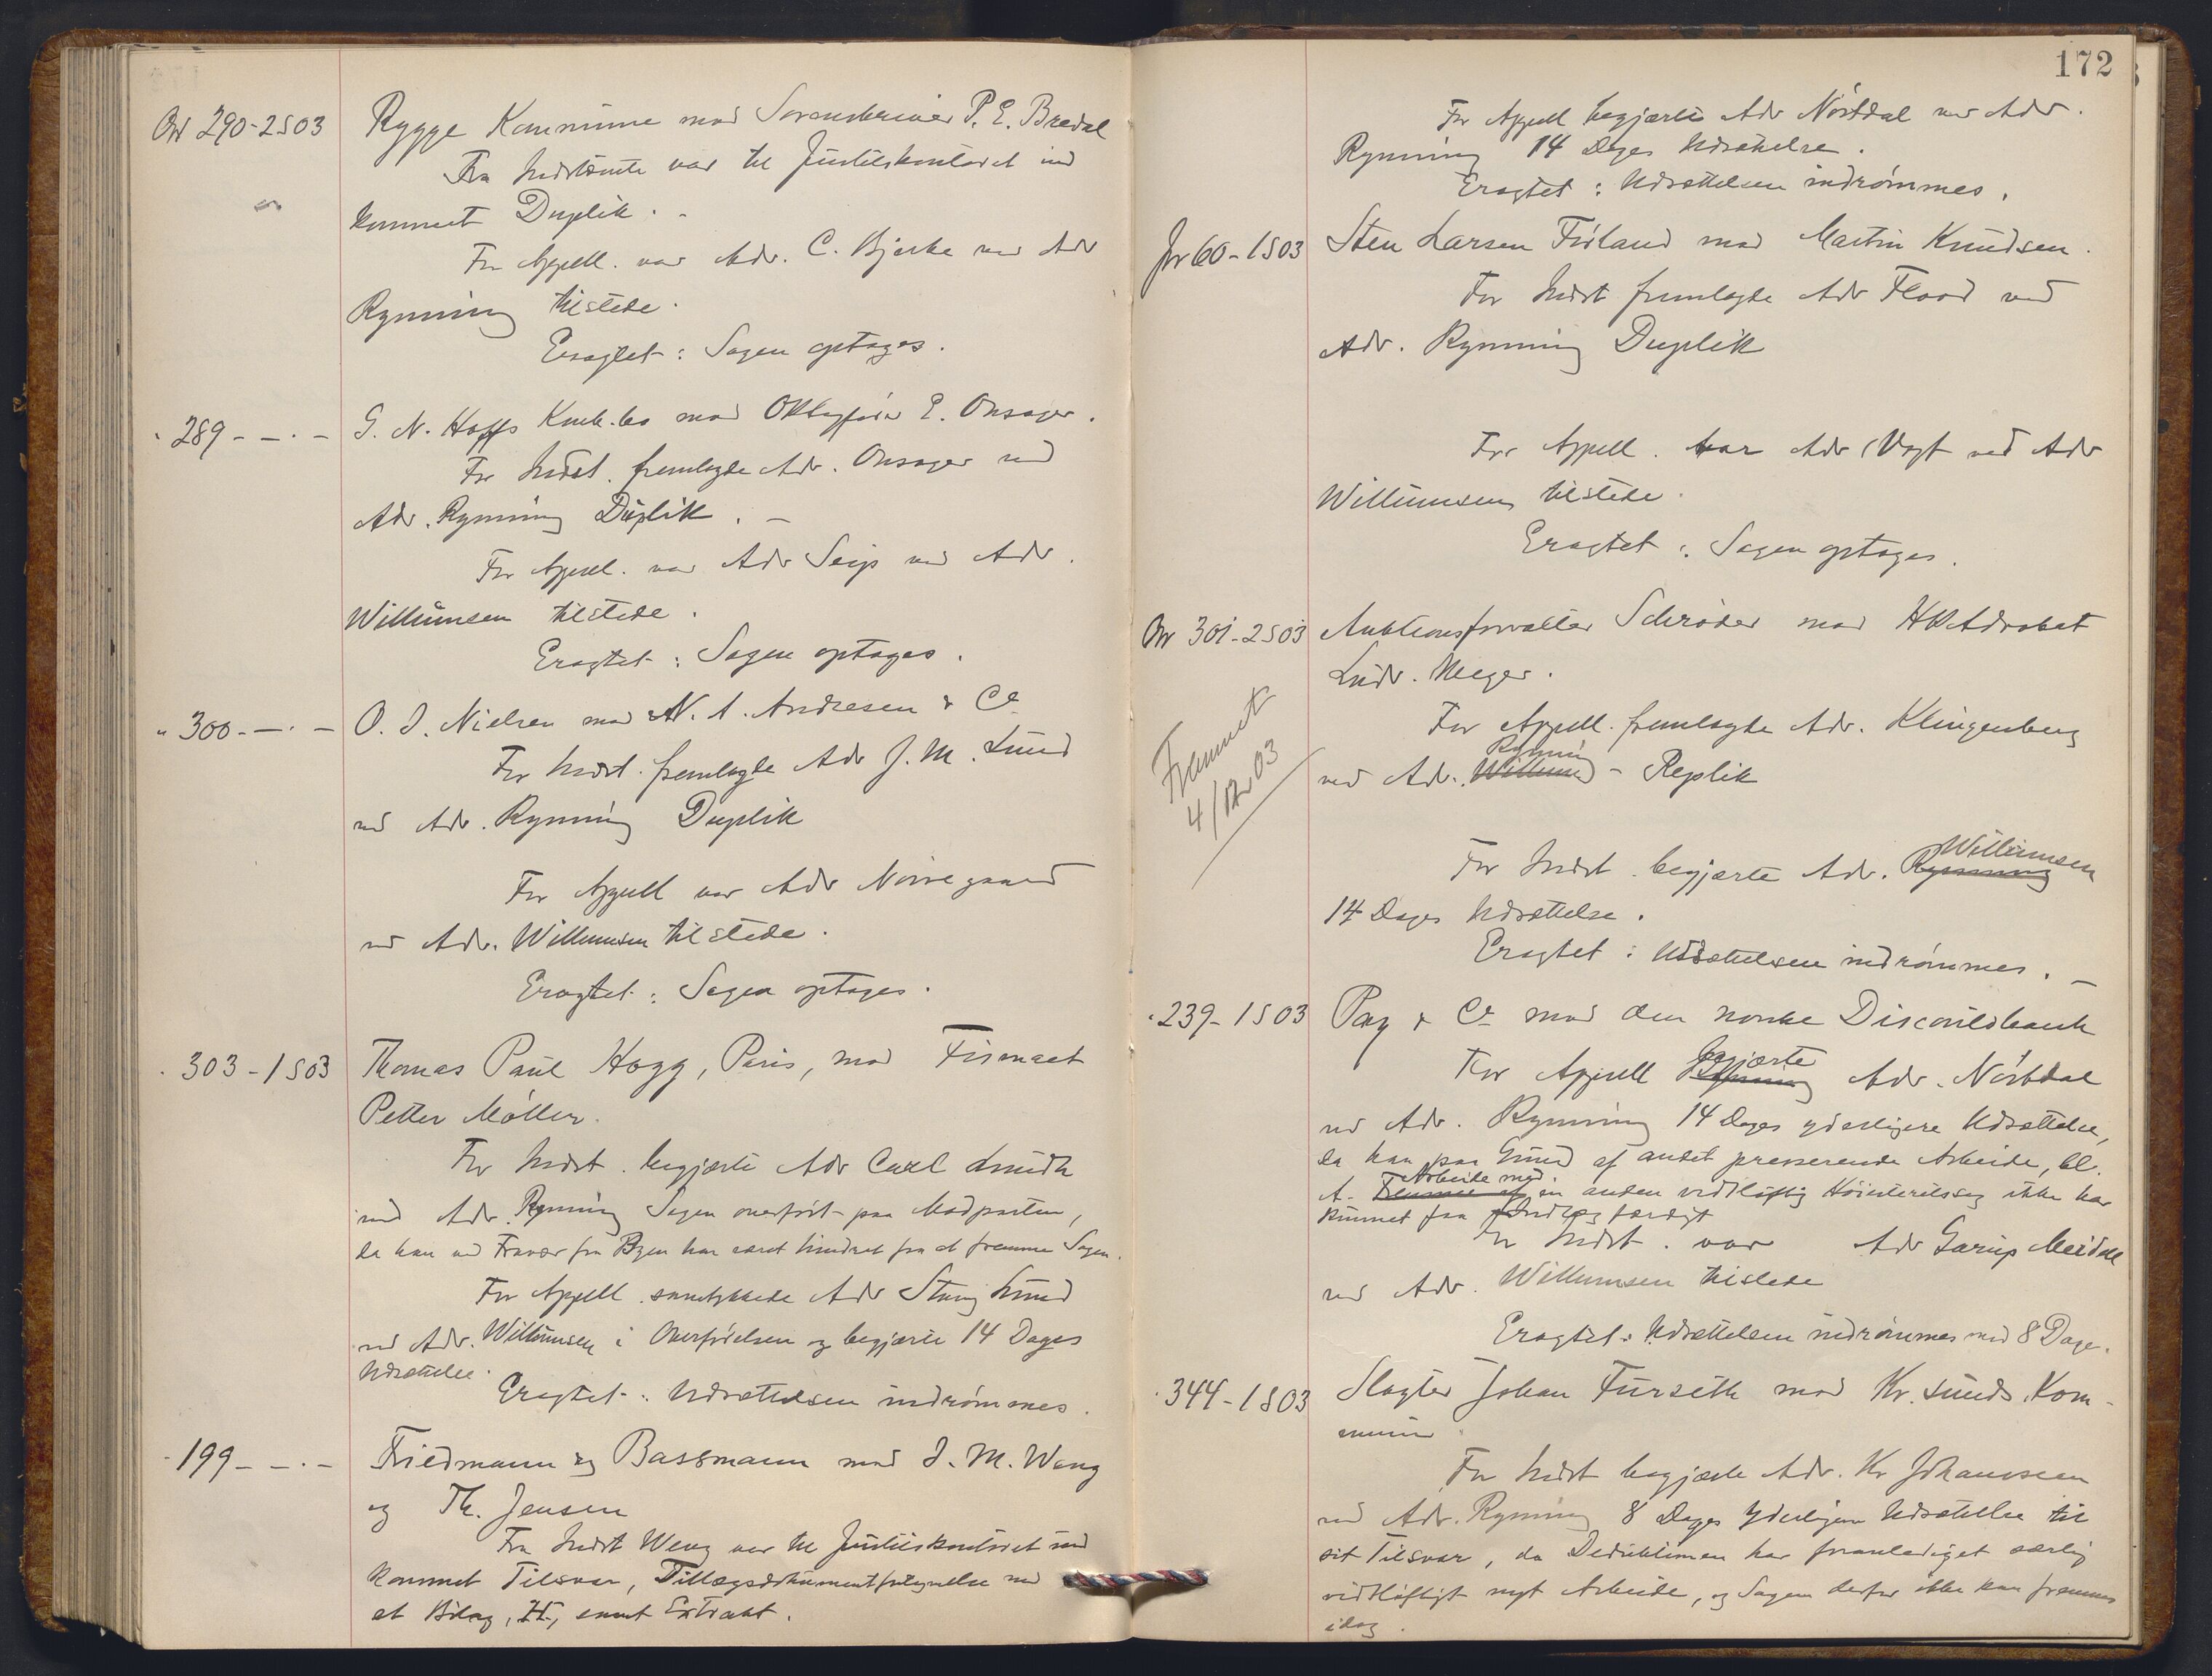 Ow 290-2S03 Rygge Kommune mod Sorenskriver P. E. Bredal
Fra Indstevnte var til Justitskontoret ind
kommet Duplik. -
For Appell. var Adv. C. Bjerke ved Adv
Rynning tilstede.
Eragtet: Sagen optages.
" 289 - - . - G. N. Hoffs Konk.bo mod ORSagfører E. Onsager.
For Indst. fremlagde Adv. Onsager ved
Adv. Rynning Duplik. -
For Appell. var Adv Seip ved Adv.
Willumsen tilstede.
Eragtet: Sagen optages.
" 300 - - . - O. J. Nielsen mod N. A. Andresen & Co
For Indst. fremlagde Adv J. M. Lund
ved Adv. Rynning Duplik
For Appell var Adv Nørregaard
ved Adv. Willumsen tilstede.
Eragtet: Sagen optages.
" 303-1S03 Thomas Paul Hogg, Paris, mod Firmaet
Petter Møller.
For Indst. begjærte Adv Carl Lundh
ved Adv. Rynning Sagen overført paa Modparten,
da han ved Fravær fra Byen har været hindret fra at fremme Sagen.
For Appell. samtykkede Adv Stang Lund
ved Adv. Willumsen i Overførelsen og begjærte 14 Dages
Udsættelse.
Eragtet: Udsættelsen indrømmes.
" 199 - - . - Friedmann og Bassmann mod J. M. Wang
og Th. Jensen
Fra Indst Wang var til Justitskontoret ind
kommet Tilsvar, Tillægsdokumentfølgnelse med
et Bilag, H, samt Extrakt.
172
For Appell begjærte Adv Nørbdal ved Adv.
Rynning 14 Dages Udsættelse.
Eragtet: Udsættelsen indrømmes.
Jvr 60-1S03 Sten Larsen Firland mod Martin Knudsen.
For Indst fremlagde Adv Flood ved
Adv. Rynning Duplik
For Appell. var Adv Vogt ved Adv
Willumsen tilstede.
Eragtet: Sagen optages.
Ow 301-2S03 Auktionsforvalter Schrøder mod HRAdvokat
Ludv. Meyer.
Fremmet
4/12 03
For Appell. fremlagde Adv. Klingenberg
Rynning
ved Adv. Willums - Replik
Willumsen
For Indst. begjærte Adv. Rynning
14 Dages Udsættelse.
Eragtet: Udsættelsen indrømmes. -
" 239-1S03 Pay & Co mod den norske Discontobank
begjærte
For Appell Rynning Adv. Nørbdal
ved Adv. Rynning 14 Dages yderligere Udsættelse,
da han paa Grund af andet presserende Arbeide, bl.
Arbeide med
A. Fremme af en anden vidtløftig Høiesteretssag ikke har
kunnet faa Indlæg færdigt
For Indst. var Adv Garup Meidell
ved Adv. Willumsen tilstede
Eragtet: Udsættelsen indrømmes med 8 Dage.
" 344-1S03 Slagter Johan Furseth mod Kr.sunds Kom-
mune.
For Indst begjærte Adv. Kr Johanssen
ved Adv. Rynning 8 Dages yderligere Udsættelse til
sit Tilsvar, da Deduktionen har foranlediget særlig
vidtløftigt nyt Arbeide, og Sagen derfor ikke kan fremmes
idag.